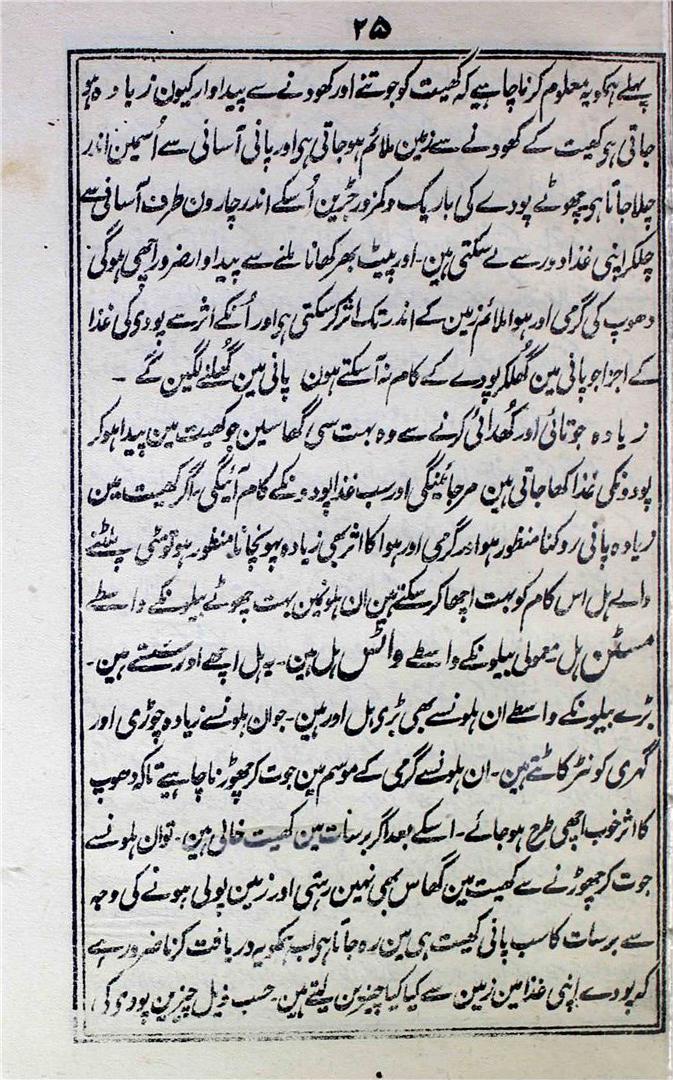 ۲۵
پہلے ہمکو یہ معلوم کرنا چاہیے کہ کھیت کو جوتنے اور کھودنے سے پیداوار کیون زیادہ ہو
جاتی ہو کھیت کے کھودنے سے زمین ملائم ہو جاتی ہو اور پانی آسانی سے اُسمین اندر
چلا جاتا ہو چھوٹے پودے کی باریک و کمزور جڑین اُسکے اندر چارون طرف آسانی سے
چلکر اپنی غذا دور سے لے سکتی ہین۔ اور پیٹ بھر کھانا ملنے سے پیداوار ضرور اچھی ہوگی
دھوپ کی گرمی اور ہوا ملائم زمین کے اندر تک اثر کر سکتی ہو اور اُنکے اثر سے پودی کی غذا
کے اجزا جو پانی مین گھلکر پودے کے کام نہ آ سکتے ہون پانی مین گھُلنے لگین گے ۔
زیادہ جوتائی اور کھُدائی کرنے سے وہ بہت سی گھاسین جو کھیت مین پیدا ہو کر
پودونکی غذا کھا جاتی ہین مرجائینگی اور سب غذا پودونکے کام آئیگی۔ اگر کھیت مین
زیادہ پانی روکنا منظور ہو اور گرمی اور ہوا کا اثر بھی زیادہ پہونچانا منظور ہو تو مٹی پلٹنے
والے ہل اس کام کو بہت اچھا کر سکتے ہین ان ہلونمین بہت چھوٹے بیلونکے واسطے
مسٹن ہل معمولی بیلونکے واسطے واٹس ہل ہین۔ یہ ہل اچھے اور سَستے ہین۔
بڑے بیلونکے واسطے ان ہلونسے بھی بڑی ہل اور ہین۔ جو ان ہلونسے زیادہ چوڑی اور
گہری کونٹر کاٹتے ہین۔ ان ہلونسے گرمی کے موسم مین جوت کر چھوڑنا چاہیے تاکہ دھوپ
کا اثر خوب اچھی طرح ہو جائے۔ اسکے بعد اگر برسات مین کھیت خالی ہین۔ تو ان ہلونسے
جوت کر چھوڑنے سے کھیت مین گھاس بھی نہین رہتی اور زمین پولی ہونے کی وجہ
سے برسات کا سب پانی کھیت ہی مین رہ جاتا ہو اب ہمکو یہ دریافت کرنا ضرور ہے
کہ پودے اپنی غذا مین زمین سے کیا کیا چیزین لیتے ہین۔ حسب ذیل چیزین پودی کی